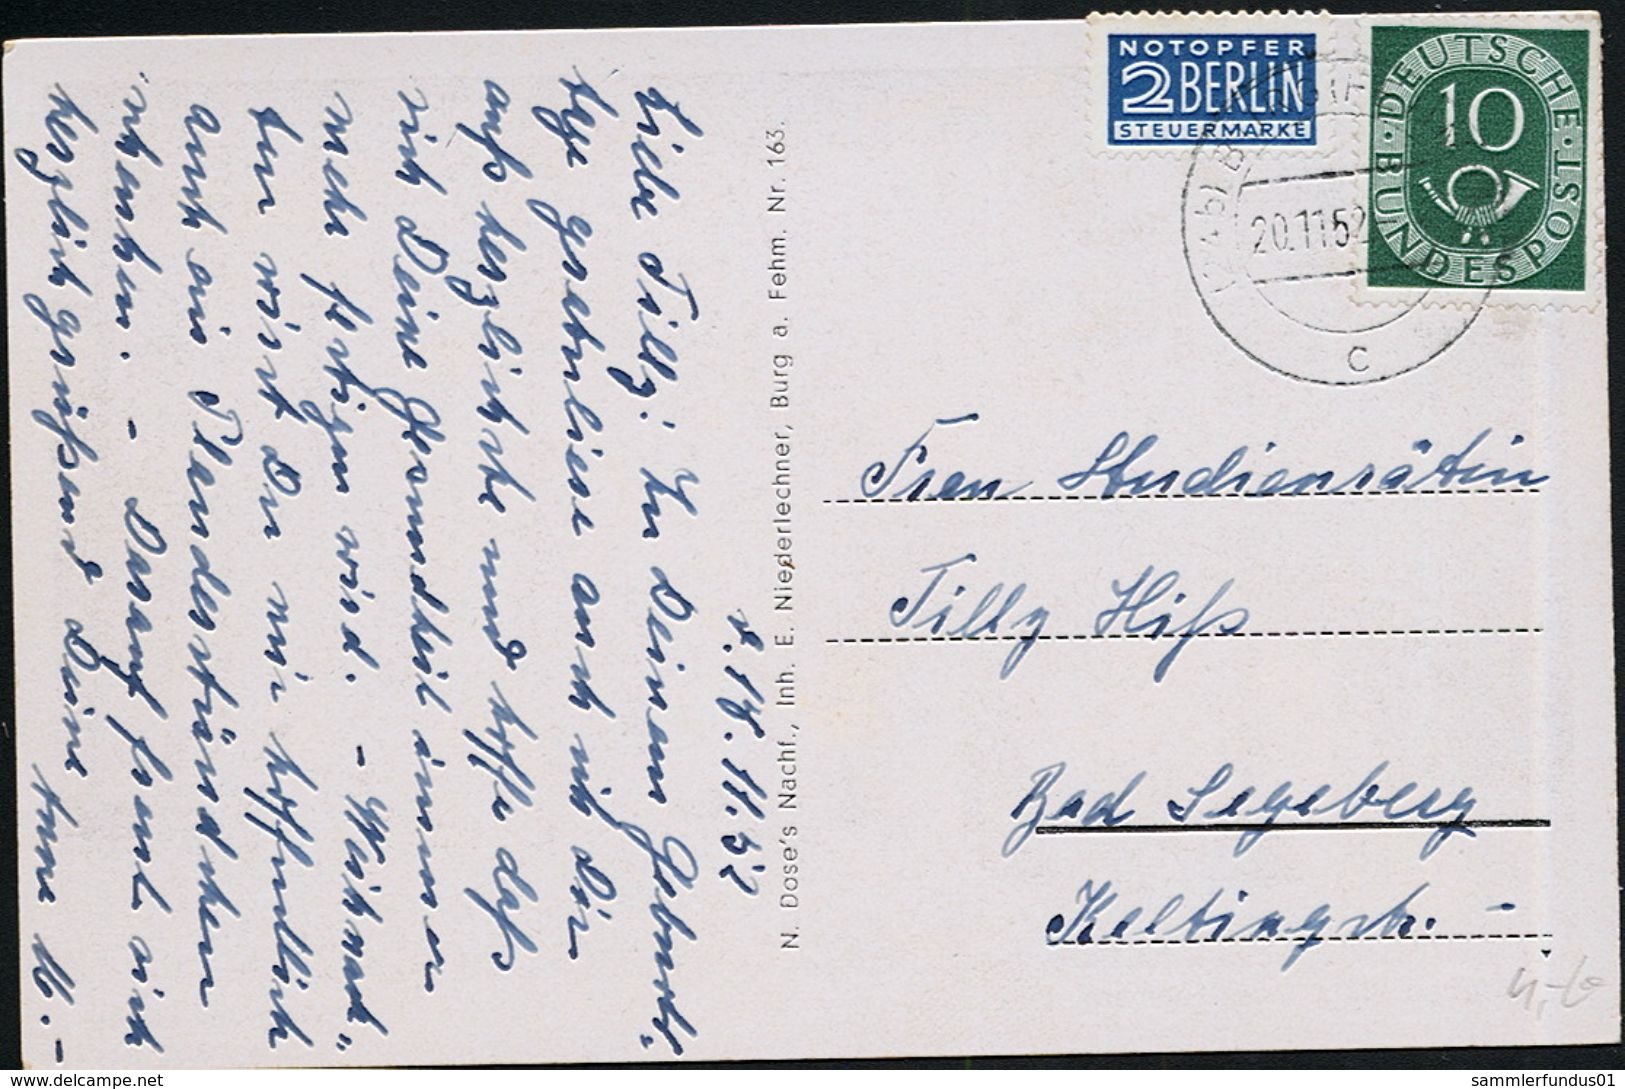 NOTOPFER
2 BERLIN
STEUERMARKE
DEUTSCHE
BUNDESPOST
10
(24b) B
20.11.52
c
d. 18.11.52
Liebe Tilly! Zu Deinem Geburts-
tage gratuliere auch ich Dir
aufs herzlichste und hoffe dass
mit Deiner Gesundheit immer
mehr
wird. - Weihnach-
ten wirst Du mir hoffentlich
auch ein Plauderstündchen
schenken. - Darauf freut sich
herzlich grüßend Deine
N. Dose's Nachf., Inh. E. Niederlechner, Burg a. Fehm. Nr. 163.
Frau Studienrätin
Tilly Hiß
Bad Segeberg
Keltingstr. -
www.delcampe.net
sammlerfundus01